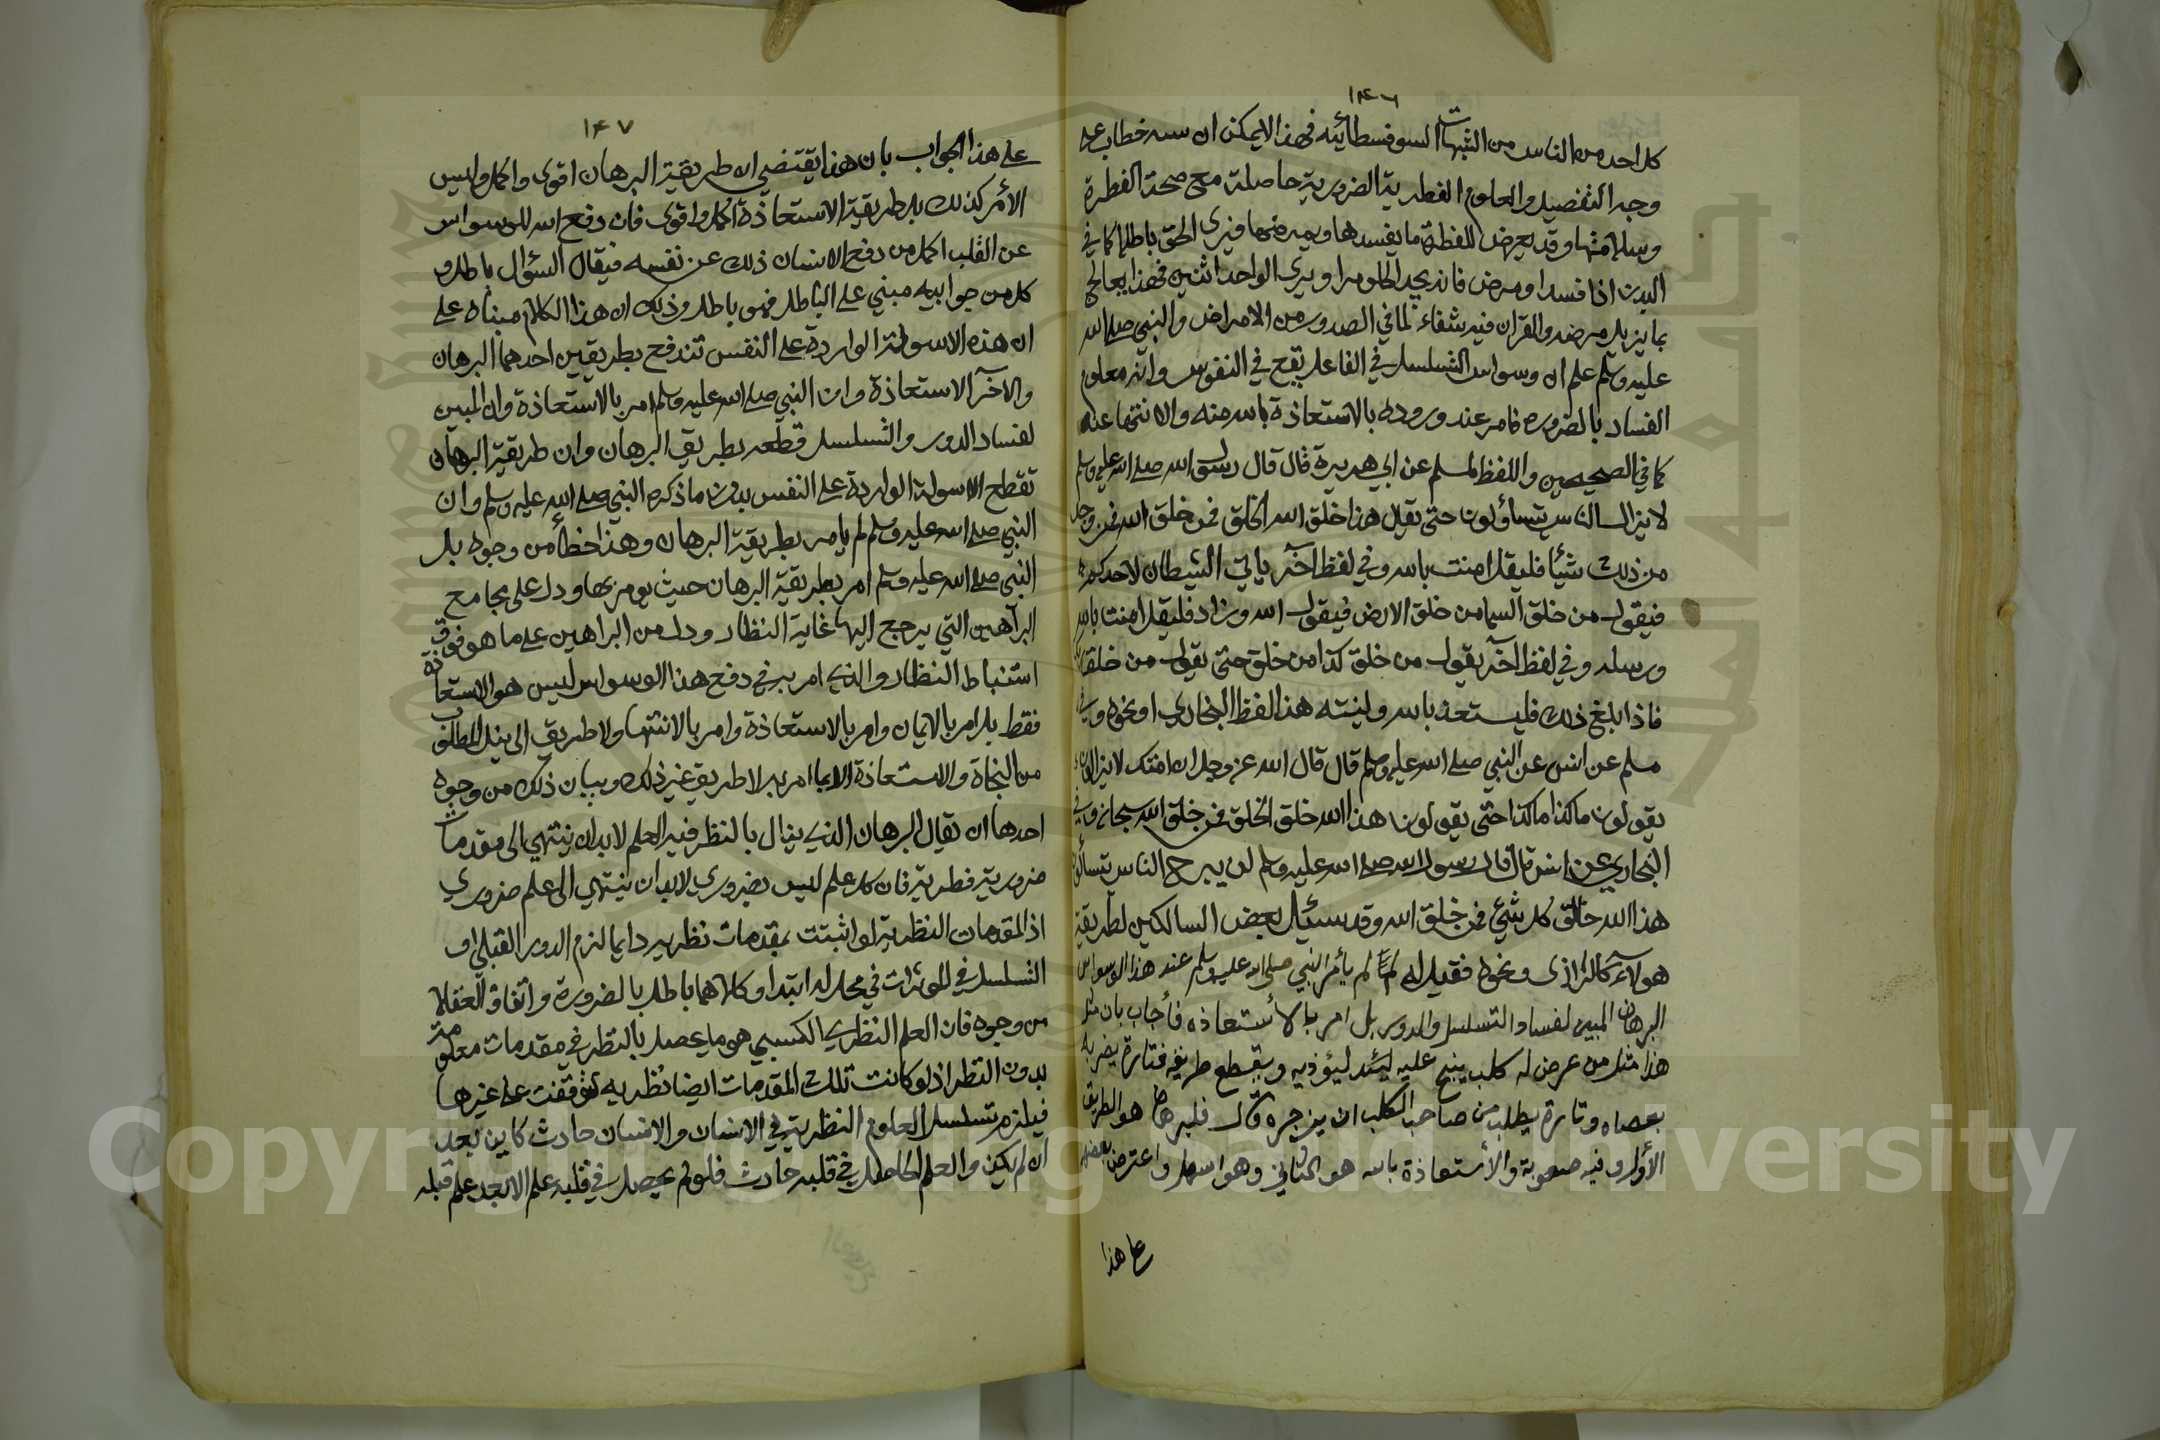 ١٤٦
كل احد من الناس من الشبهات السوفسطائيه فهذا لا يمكن ان خطاب على
وجه التفصيل والعلوم الفطرية الضرورية حاصلة مع صحة الفطرة
وسلامتها وقد يعرض للفطرة ما يفسدها ويمرضها فيرى الحق باطلا كما في
البدن اذا فسد او مرض فانه يجد الحلو مرا ويرى الواحد اثنين فهذا يعالج
بما يزيل مرضه والقران فيه شفاء لما في الصدور من الامراض والنبي صلى الله
عليه وسلم علم ان وسواس التسلسل في الفاعل يقع في النفوس وانه معلوم
الفساد بالضروره فامر عند وروده بالاستعاذة بالله منه والانتها عنه
كما في الصحيحين واللفظ لمسلم عن ابي هريرة قال قال رسول الله صلى الله عليه وسلم
لا يزال الناس يتسأولون حتى يقال هذا خلق الله الخلق فمن خلق الله فمن وجد
من ذلك شيئا فليقل امنت بالله وفي لفظ آخر ياتي الشيطان لاحدكم
فيقول من خلق السما من خلق الارض فيقول الله وزاد فليقل امنت بالله
ورسله وفي لفظ آخر يقول من خلق كذا من خلق حتى يقول من خلق
فاذا بلغ ذلك فليستعذ بالله ولينته هذا لفظ البخاري او نحوه وفي
مسلم عن انس عن النبي صلى الله عليه وسلم قال قال الله عز وجل ان امتك لا يزالون
يقولون ما كذا ما كذا حتى يقولون هذا الله خلق الخلق فمن خلق الله سبحانه وفي
البخاري عن انس قال قال رسول الله صلى الله عليه وسلم لن يبرح الناس يتسألون
هذا الله خالق كل شيء فمن خلق الله وقد سئيل بعض السالكين لطريقة
هولآء كالرازى ونحوه فقيل له لم لم يأمر النبي صلى الله عليه وسلم عند هذا الوسواس
البرهان المبين لفساد التسلسل والدور بل امر بالأستعاذه فأجاب بان مثل
هذا مثل من عرض له كلب ينبح عليه ليؤذيه ويقطع طريقه فتارة يضربه
بعصاه وتارة يطلب من صاحب الكلب ان يزجره قال فالبرهان هو الطريق
الأول وفيه صعوبة والأستعاذة بالله هو الثاني وهو اسهل واعترض بعضهم
على هذا
١٤٧
على هذا الجواب بان هذا يقتضي ان طريقية البرهان اقوى واكمل وليس
الأمر كذلك بل طريقية الاستعاذة اكمل واقوى فان دفع الله للوسواس
عن القلب اكمل من دفع الانسان ذلك عن نفسه فيقال السؤال باطل و
كل من جوابيه مبني على الباطل فهو باطل وذلك ان هذا الكلام مبناه على
ان هذه الاسولة الواردة على النفس تندفع بطريقين احدهما البرهان
والآخر الاستعاذة وان النبي صلى الله عليه وسلم امر بالاستعاذة وان المبين
لفساد الدور والتسلسل قطعه بطريق البرهان وان طريقية البرهان
تقطع الاسولة الواردة على النفس بدون ما ذكره النبي صلى الله عليه وسلم وان
النبي صلى الله عليه وسلم لم يامر بطريقية البرهان وهذا خطأ من وجوه بل
النبي صلى الله عليه وسلم امر بطريقية البرهان حيث يومر بها ودل على مجامع
البراهين التي يرجع اليها غاية النظار ودل من البراهين على ما هو فوق
استنباط النظار والذي امر به في دفع هذا الوسواس ليس هو الاستعاذة
فقط بل امر بالايمان وامر بالاستعاذة وامر بالانتها ولا طريق الى نيل المطلوب
من النجاة والاستعاذة الا بما امر به لا طريق غير ذلك وبيان ذلك من وجوه
احدها ان يقال البرهان الذي ينال بالنظر فيه العلم لا بد ان ينتهي الى مقدمات
ضرورية فطرية فان كل علم ليس بضروري لا بد ان ينتهي الى علم ضروري
اذ المقدمات النظرية لو اثبتت بمقدمات نظريه دايما لزم الدور القبلي او
التسلسل في الموثرات في محل له ابتدا وكلاهما باطل بالضرورة واتفاق العقلا
من وجوه فان العلم النظري الكسبي هو ما يحصل بالنظر في مقدمات معلومة
بدون النظر اذ لو كانت تلك المقدمات ايضا نظريه لتوقفت على غيرها
فيلزم تسلسل العلوم النظرية في الانسان والانسان حادث كاين بعد
ان لم يكن والعلم الحاصل في قلبه حادث فلو لم يحصل في قلبه علم الا بعد علم قبله
Copyright © King Saud University